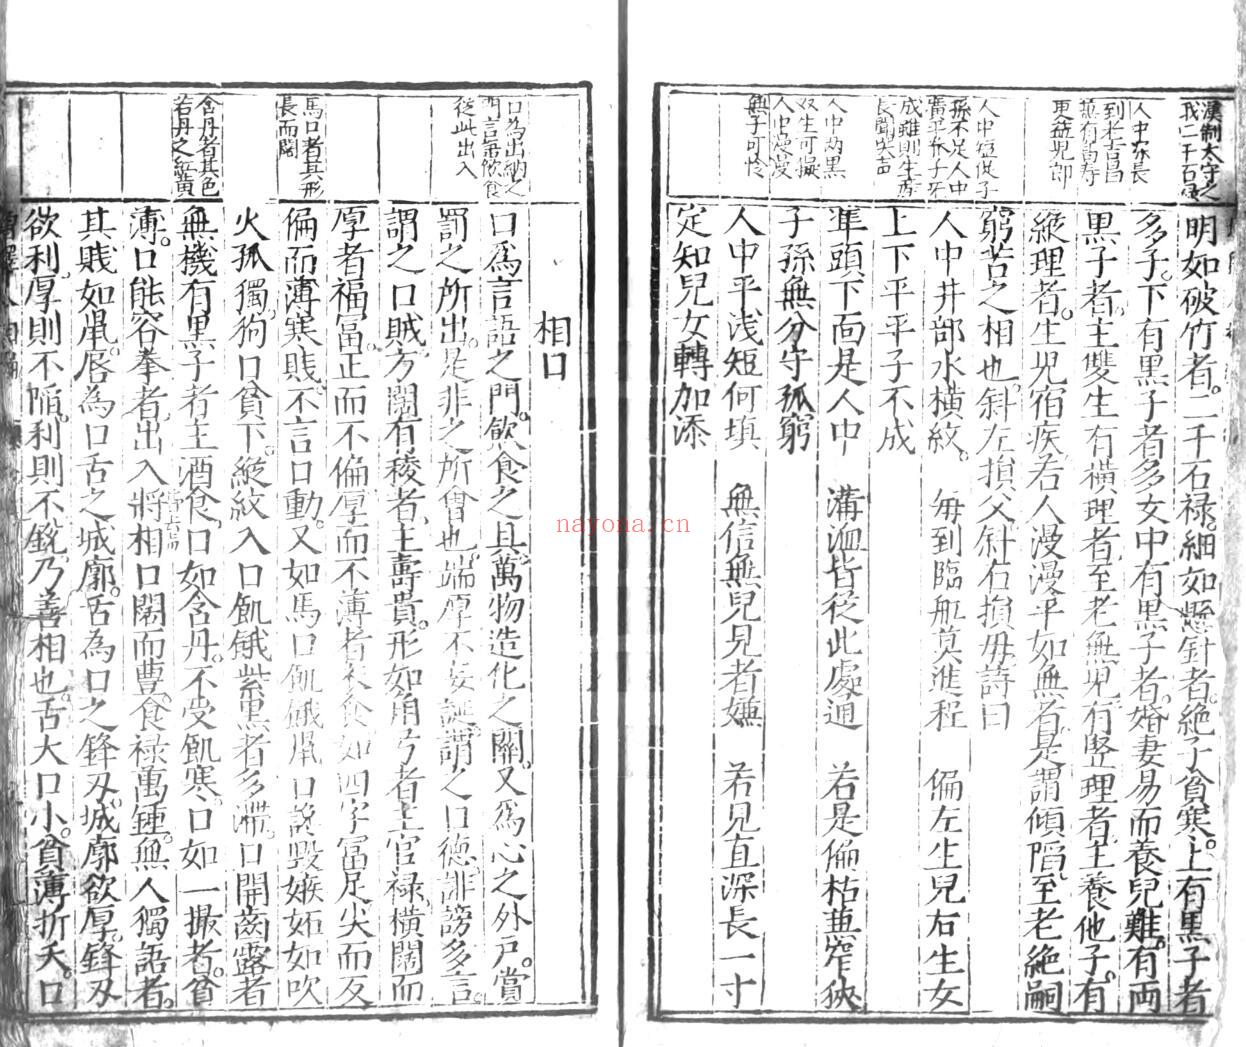 漢制太守之
我二千石祿
人中深長
到老吉昌
並有高壽
更益兒郎
人中短促子
孫不足人中
廣平養子不
成雖則生產
長聞哭声
人中两黑
双生可擬
人中漫漫
無子可怜
明如破竹者。二千石禄。細如懸針者。絶子貧寒。上有黒子者
多子。下有黒子者多女中有黒子者。婚妻易而養兒難。有両
黒子者。主雙生有横理者至老無児。有竪理者。主養他子。有
縱理者。生児宿疾。若人漫漫平如無者。是謂傾陷。至老絶嗣
窮苦之相也。斜左損父。斜右損毋詩曰
人中井部水横紋。 毎到臨船莫進程 偏左生兒右生女
上下平平子不成
凖頭下面是人中 溝洫皆從此處通 若是偏枯兼窄狹
子孫無分守孤窮
人中平浅短何填 無信無兒見者嫌 若見直深長一寸
定知兒女轉加添
相口
口為出納之
門言語飲食
從此出入
馬口者其形
長而闊
含丹者其色
若丹之紅黄
口爲言語之門。飲食之具。萬物造化之關。又爲心之外戸。賞
罰之所出。是非之所㑹也。端厚不妄誕。謂之口德。誹謗多言。
謂之口賊。方闊有稜者。主壽貴。形如角弓者主官禄。横闊而
厚者福富。正而不偏厚而不薄者衣食如四字富足尖而反
偏而薄寒賎。不言口動。又如馬口飢餓鼠口讒毁嫉妬如吹
火孤獨。狗口貧下。縱紋入口飢餓紫黒者多滯。口開齒露者
無機有黒子者主酒食。口如含丹。不受飢寒。口如一撮者。貧
薄。口能容拳者。出入將相口闊而豊。食禄萬鍾。無人獨語者。
其賎如鼠。唇為口舌之城廓。舌為口之鋒刃。城廓欲厚。鋒刃
欲利。厚則不陷。利則不銳。乃善相也。舌大口小。貧薄折夭。口
nayona.cn